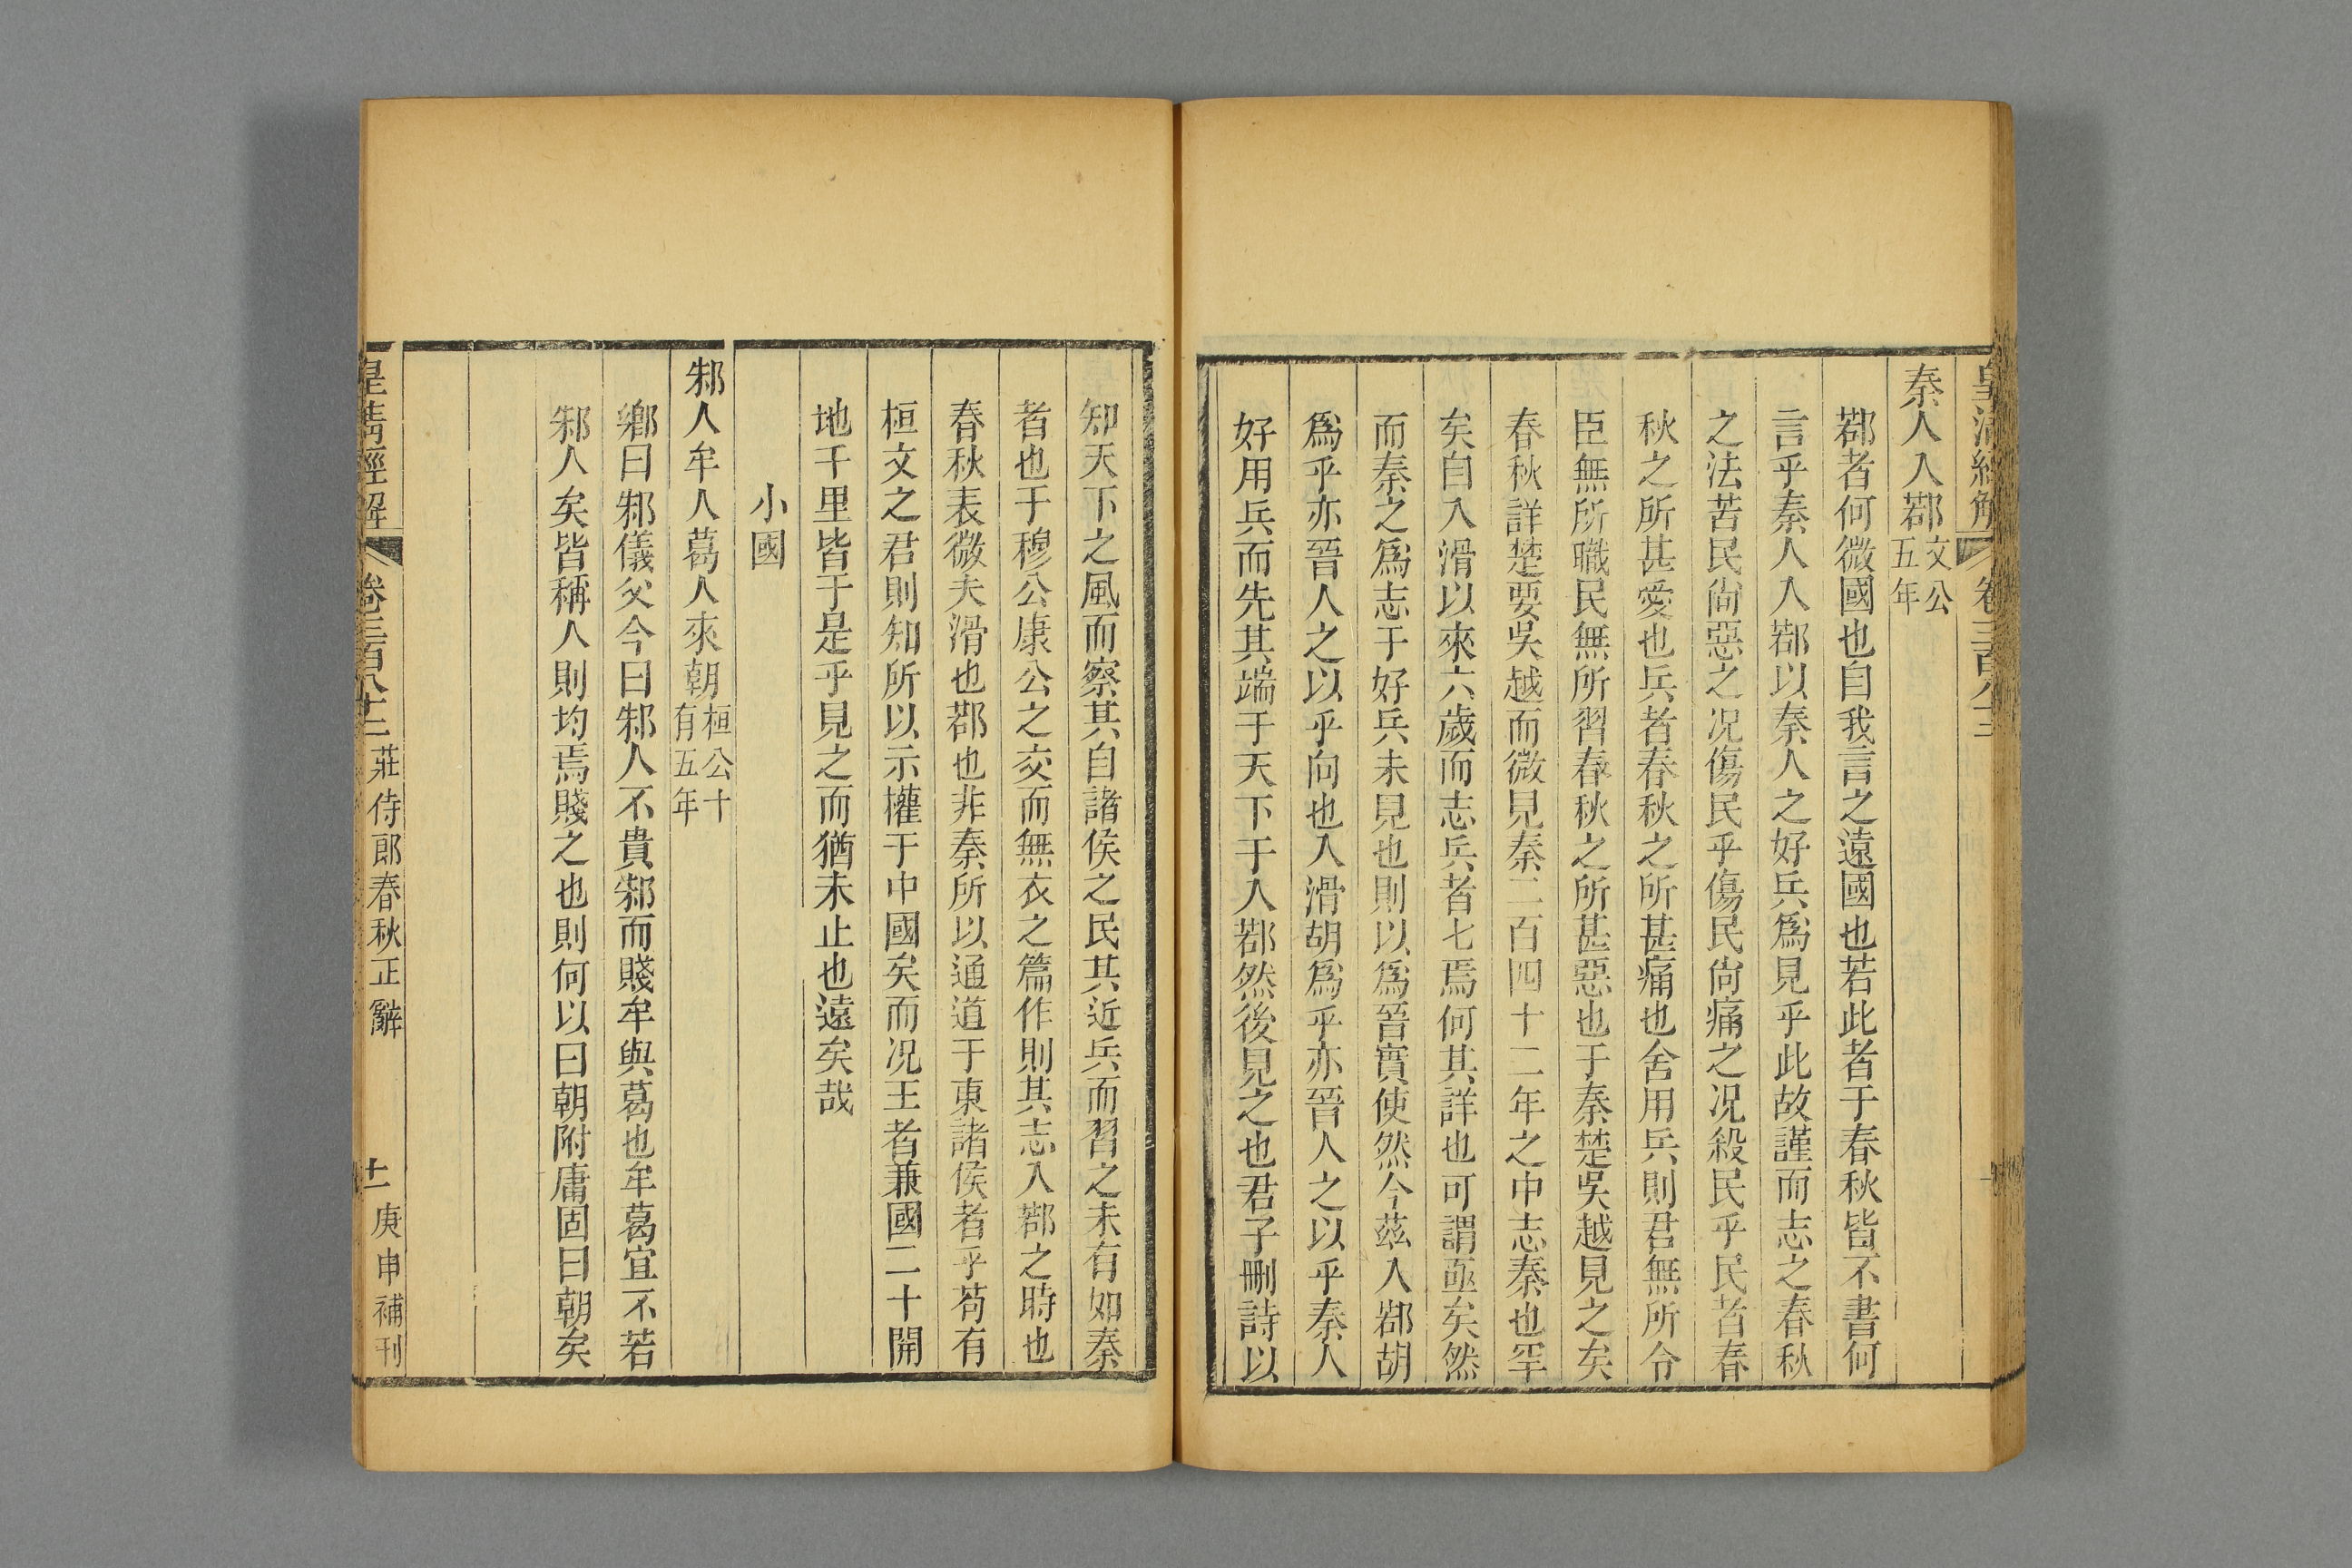 皇清經解 卷三百八十三
秦人入鄀文公五年
鄀者何微國也自我言之遠國也若此者于春秋皆不書何
言乎秦人入鄀以秦人之好兵爲見乎此故謹而志之春秋
之法苦民尙惡之况傷民乎傷民尙痛之况殺民乎民者春
秋之所甚愛也兵者春秋之所甚痛也舍用兵則君無所令
臣無所職民無所習春秋之所甚惡也于秦楚吳越見之矣
春秋詳楚要吳越而微見秦二百四十二年之中志秦也罕
矣自入滑以來六歲而志兵者七焉何其詳也可謂亟矣然
而秦之爲志于好兵未見也則以爲晉實使然今茲入鄀胡
爲乎亦晉人之以乎向也入滑胡爲乎亦晉人之以乎秦人
好用兵而先其端于天下于入鄀然後見之也君子刪詩以
知天下之風而察其自諸侯之民其近兵而習之未有如秦
者也于穆公康公之交而無衣之篇作則其志入鄀之時也
春秋表微夫滑也鄀也非秦所以通道于東諸侯者乎苟有
桓文之君則知所以示權于中國矣而况王者兼國二十開
地千里皆于是乎見之而猶未止也遠矣哉
小國
邾人牟人葛人來朝桓公十有五年
鄉曰邾儀父今曰邾人不貴邾而賤牟與葛也牟葛宜不若
邾人矣皆稱人則均焉賤之也則何以曰朝附庸固曰朝矣
皇清經解 卷三百八十三 莊侍郎春秋正辭 十一 庚申補刊